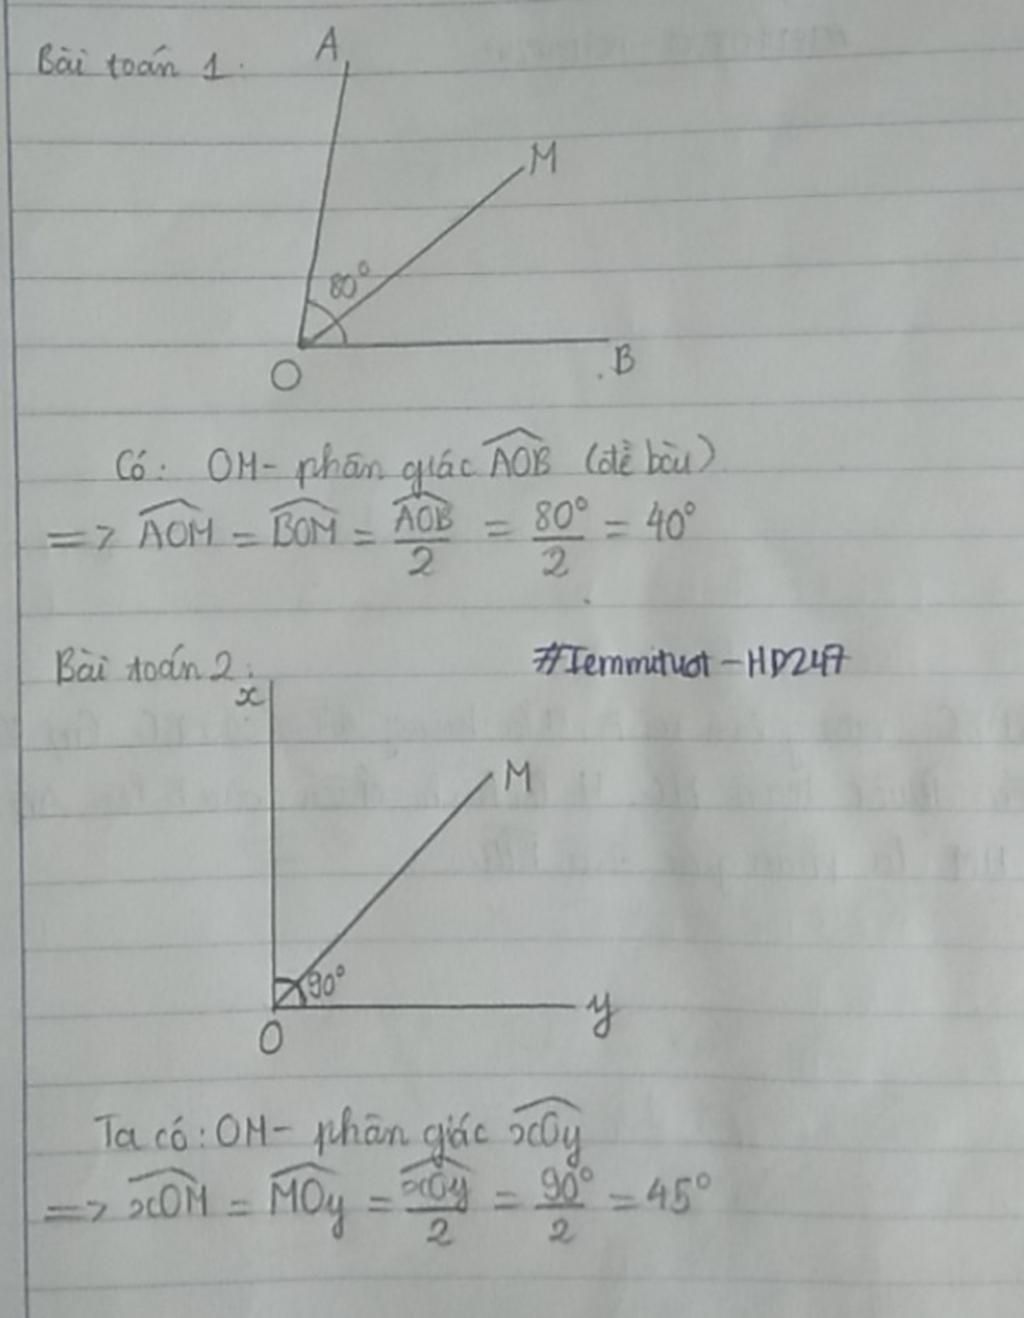 Bài toán 1:
A
M
80°
O
B
Có: OM - phân giác AOB (đề bài)
=> AOM = BOM = AOB/2 = 80°/2 = 40°
Bài toán 2:
#Temmituot - HD247
x
M
90°
O
y
Ta có: OM - phân giác xOy
=> xOM = MOy = xOy/2 = 90°/2 = 45°